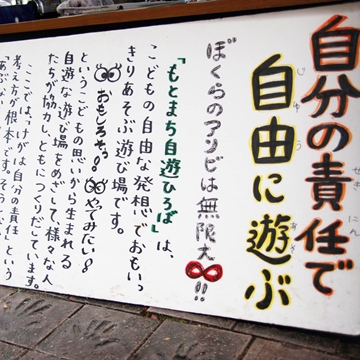 自分の責任で
せきにん
自由に遊ぶ
じゆう あそ
ぼくらのアソビは無限大!!
「もとまち自遊ひろば」は、
こどもの自由な発想でおもいっ
きりあそぶ遊び場です。
おもしろそう!やってみたい!
というこどもの思いから生まれる
自遊な遊び場をめざして様々な人
たちが協力し、ともにつくりだしています。
ここでは、「けがは自分の責任」という
考え方が根本です。そう